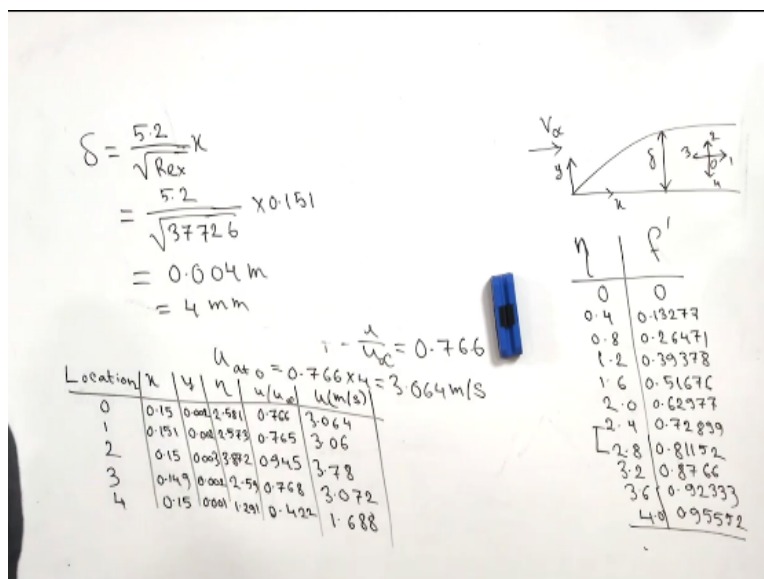 δ = 5.2 / √Rex x
= 5.2 / √37726 × 0.151
= 0.004 m
= 4 mm
u/u∝ = 0.766
u at 0 = 0.766 × 4 = 3.064 m/s
Location x y η u/u∞ u(m/s)
0 0.15 0.002 2.581 0.766 3.064
1 0.151 0.002 2.573 0.765 3.06
2 0.15 0.003 3.872 0.945 3.78
3 0.149 0.002 2.59 0.768 3.072
4 0.15 0.001 1.291 0.422 1.688
V∝
y
x
δ
2
3 0 1
4
η f'
0 0
0.4 0.13277
0.8 0.26471
1.2 0.39378
1.6 0.51676
2.0 0.62977
2.4 0.72899
2.8 0.81152
3.2 0.8766
3.6 0.92333
4.0 0.95552